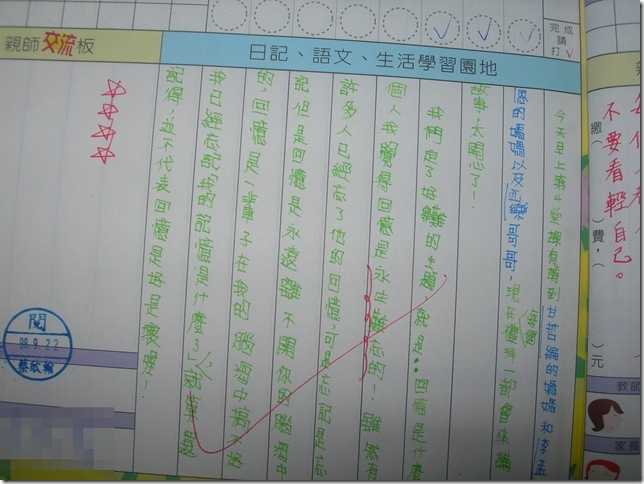 完成
請
打✓
親師交流板
日記、語文、生活學習園地
今天早上第4堂課有請到甘哲綸的媽媽和李孟
恩的媽媽以及西樂哥哥,現在每個禮拜一都會來講
故事,太開心了!
我們定了好難的主題,就是:回憶是什麼
個人我覺得回憶是永生難忘的!雖然有
許多人已經忘了他的回憶,可是忘記是忘
記但是回憶是永遠離不開你的腦海中
的,回憶是一輩子在我的腦海中揮不去
我已經忘記我的記憶是什麼了,就算還
記得,並不代表回憶是好是壞喔!
☆☆☆☆
閱
98.9.22
不要看輕自己。
繳( )費,( )元
教師
家長